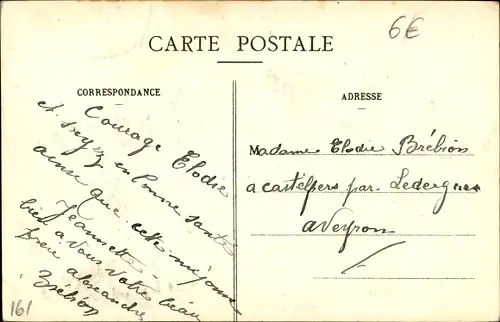 6€
CARTE POSTALE
CORRESPONDANCE
Courage Elodie
et soyez en bonne santé
ainsi que cette mignonne
Jeannette
bien a vous votre beau
frere alexandre
Brébion
161
ADRESSE
Madame Elodie Brébion
a castelpers par Ledergues
aveyron